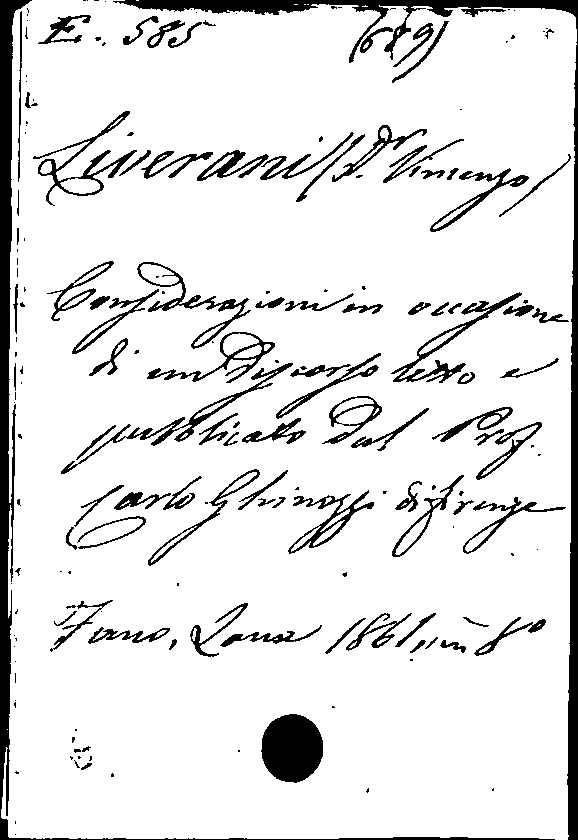 E. 585 (689)
Liverani (Dr. Vincenzo)
Considerazioni in occasione
di un Discorso letto e
pubblicato dal Prof.
Carlo Ghinozzi di Firenze
Fano, Lana 1861, in 8º